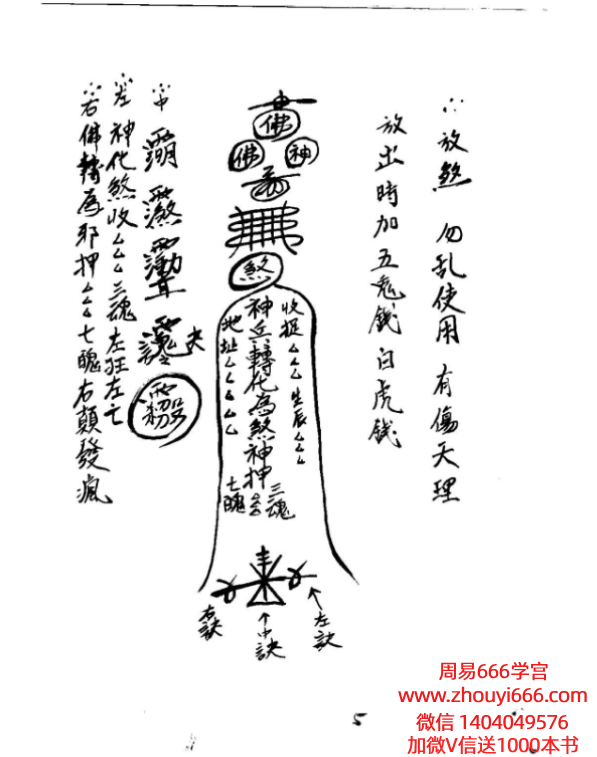 ∴放煞 勿乱使用 有傷天理
放出時加五鬼錢白虎錢
佛
佛 神
煞
收捉△△△生辰△△△
神兵轉化為煞神押
地址△△△△△
三魂
七魄
∴中
夬
∴左神化煞收△△△三魂左狂左亡
∴右佛轉為邪押△△△七魄右顛發瘋
右訣
中訣
左訣
5
周易666学宫
www.zhouyi666.com
微信 1404049576
加微V信送1000本书